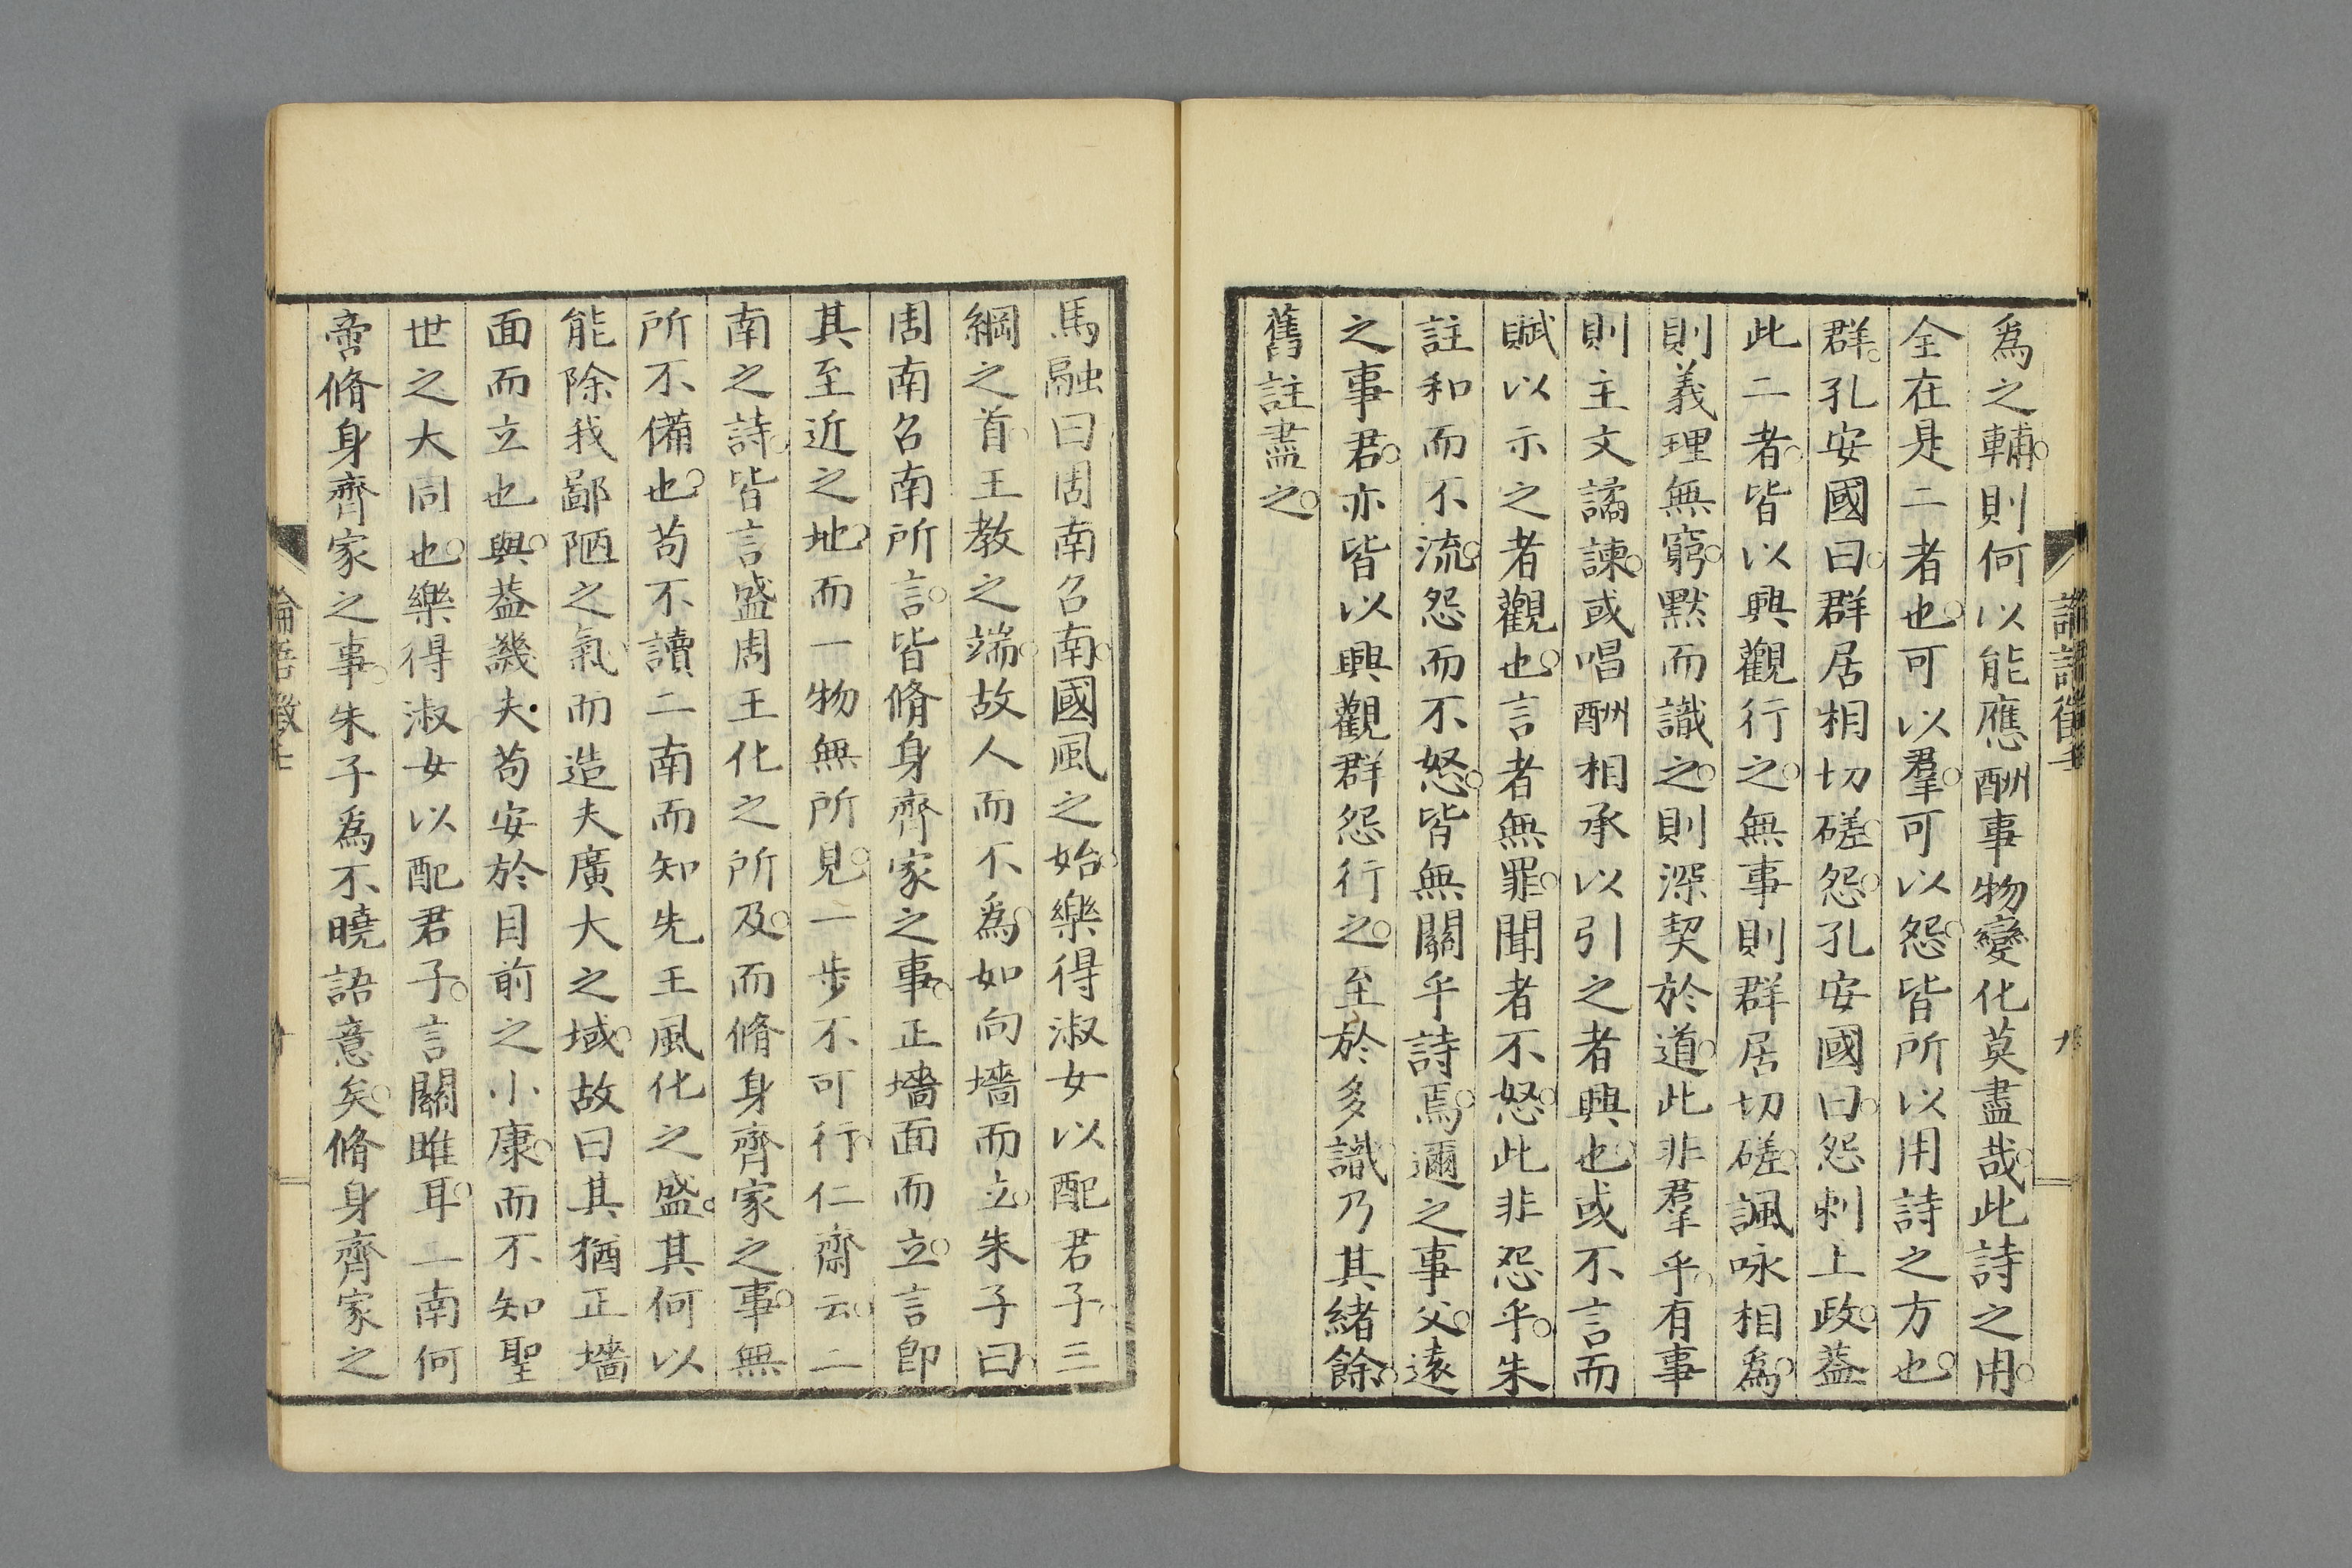 論語徵壬
九
爲之輔則何以能應酬事物變化莫盡哉此詩之用
全在是二者也可以羣可以怨皆所以用詩之方也
群孔安國曰群居相切磋怨孔安國曰怨刺上政葢
此二者皆以興觀行之無事則群居切磋諷咏相爲
則義理無窮默而識之則深契於道此非羣乎有事
則主文譎諫或唱酬相承以引之者興也或不言而
賦以示之者觀也言者無罪聞者不怒此非怨乎朱
註和而不流怨而不怒皆無關乎詩焉邇之事父遠
之事君亦皆以興觀群怨行之至於多識乃其緒餘
舊註盡之
馬融曰周南召南國風之始樂得淑女以配君子三
綱之首王教之端故人而不爲如向墻而立朱子曰
周南召南所言皆脩身齊家之事正墻面而立言卽
其至近之地而一物無所見一步不可行仁齋云二
南之詩皆言盛周王化之所及而脩身齊家之事無
所不備也苟不讀二南而知先王風化之盛其何以
能除我鄙陋之氣而造夫廣大之域故曰其猶正墻
面而立也與葢譏夫苟安於目前之小康而不知聖
世之大同也樂得淑女以配君子言關雎耳二南何
啻脩身齊家之事朱子爲不曉語意矣脩身齊家之
論語徵壬